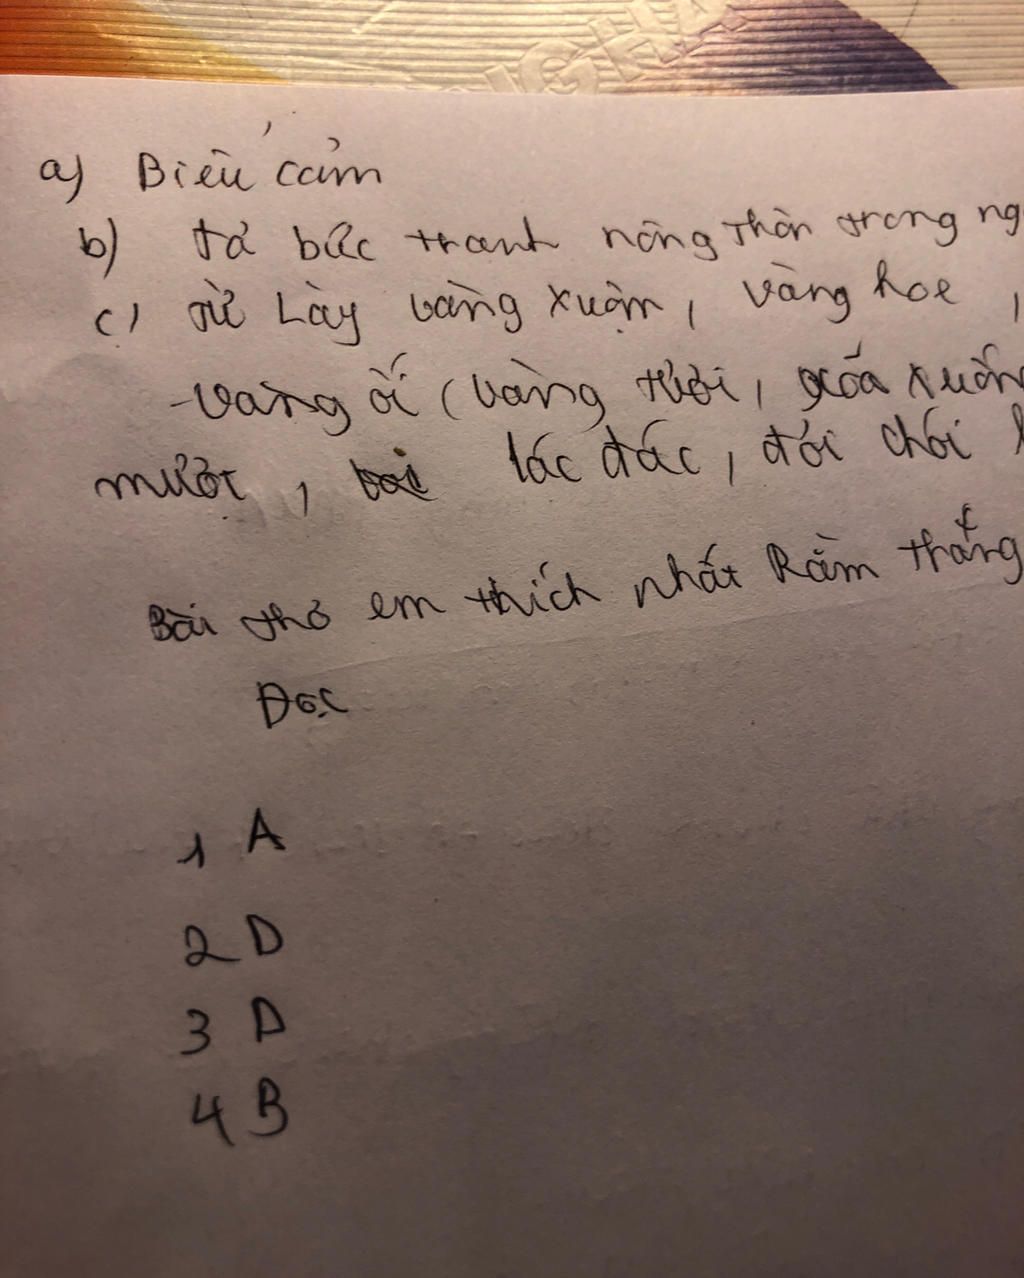 NGHA
a) Biểu cảm
b) tả bức tranh nông thôn trong ng
c) từ Láy vàng xuộm, vàng hoe,
- vàng ối (vàng tươi, xóa xuốn
mượt, lác đác, đới chới l
Bài thơ em thích nhất Rằm tháng
Đọc
1 A
2 D
3 D
4 B